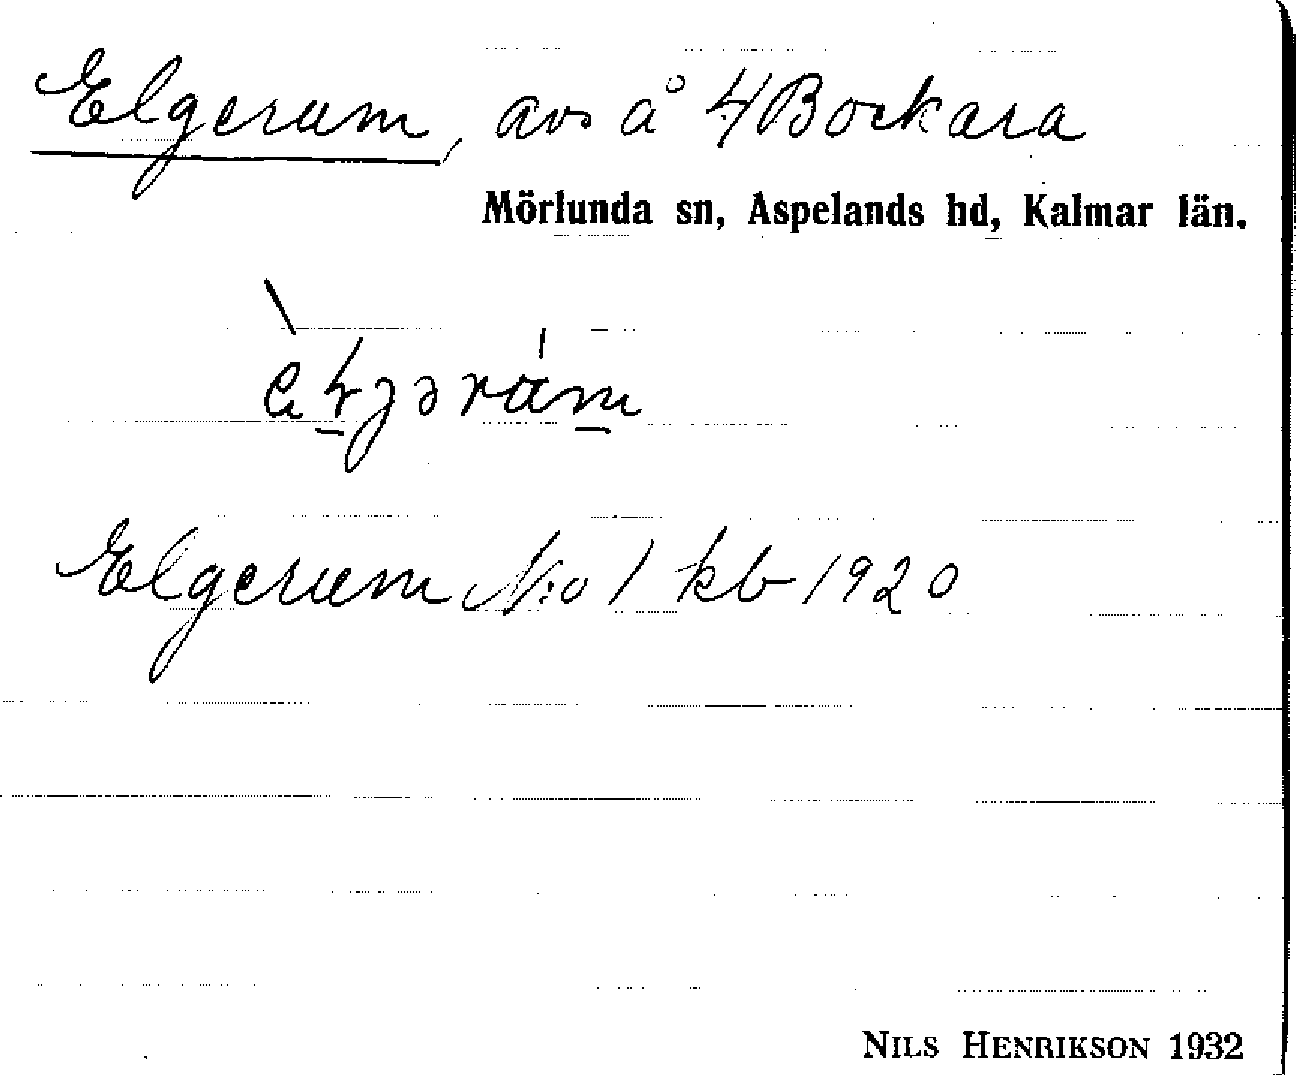 Elgerum, avs å 4/ Bockara
Mörlunda sn, Aspelands hd, Kalmar län.
Elgerum N:o 1 kb 1920
NILS HENRIKSON 1932